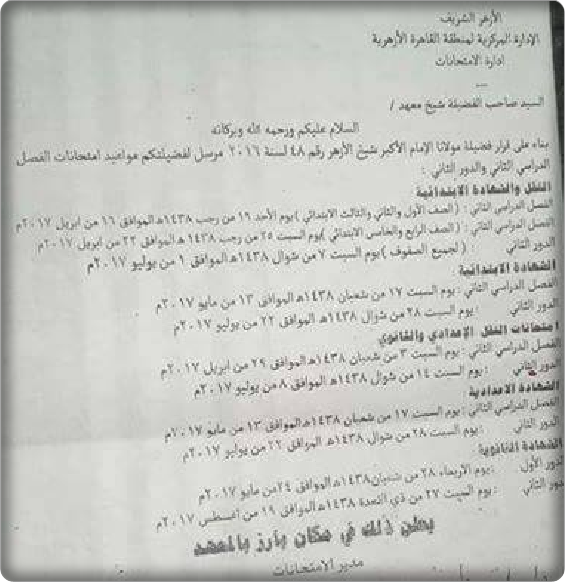 الأزهر الشريف
الإدارة المركزية لمنطقة القاهرة الأزهرية
ادارة الامتحانات
السيد صاحب الفضيلة شيخ معهد /
السلام عليكم ورحمه الله وبركاته
بناء على قرار فضيلة مولانا الإمام الأكبر شيخ الأزهر رقم ٤٨ لسنة ٢٠١٦ مرسل لفضيلتكم مواعيد امتحانات الفصل
الدراسي الثاني والدور الثاني :
النقل والشهادة الابتدائية
الفصل الدراسي الثاني : (الصف الأول والثاني والثالث الابتدائي) يوم الأحد ١٩ من رجب ١٤٣٨هـ الموافق ١٦ من ابريل ٢٠١٧م
الفصل الدراسي الثاني : (الصف الرابع والخامس الابتدائي) يوم السبت ٢٥ من رجب ١٤٣٨هـ الموافق ٢٢ من ابريل ٢٠١٧م
الدور الثاني : (لجميع الصفوف) يوم السبت ٧ من شوال ١٤٣٨هـ الموافق ١ من يوليو ٢٠١٧م
الشهادة الابتدائية
الفصل الدراسي الثاني : يوم السبت ١٧ من شعبان ١٤٣٨هـ الموافق ١٣ من مايو ٢٠١٧م
الدور الثاني : يوم السبت ٢٨ من شوال ١٤٣٨هـ الموافق ٢٢ من يوليو ٢٠١٧م
امتحانات النقل الإعدادي والثانوي
الفصل الدراسي الثاني : يوم السبت ٣ من شعبان ١٤٣٨هـ الموافق ٢٩ من ابريل ٢٠١٧م
الدور الثاني : يوم السبت ١٤ من شوال ١٤٣٨هـ الموافق ٨ من يوليو ٢٠١٧م
الشهادة الاعدادية
الفصل الدراسي الثاني : يوم السبت ١٧ من شعبان ١٤٣٨هـ الموافق ١٣ من مايو ٢٠١٧م
الدور الثاني : يوم السبت ٢٨ من شوال ١٤٣٨هـ الموافق ٢٢ من يوليو ٢٠١٧م
الشهادة الثانوية
الدور الأول : يوم الاربعاء ٢٨ من شعبان ١٤٣٨هـ الموافق ٢٤ من مايو ٢٠١٧م
الدور الثاني : يوم السبت ٢٧ من ذي القعدة ١٤٣٨هـ الموافق ١٩ من اغسطس ٢٠١٧م
يعلن ذلك في مكان بارز بالمعهد
مدير الامتحانات